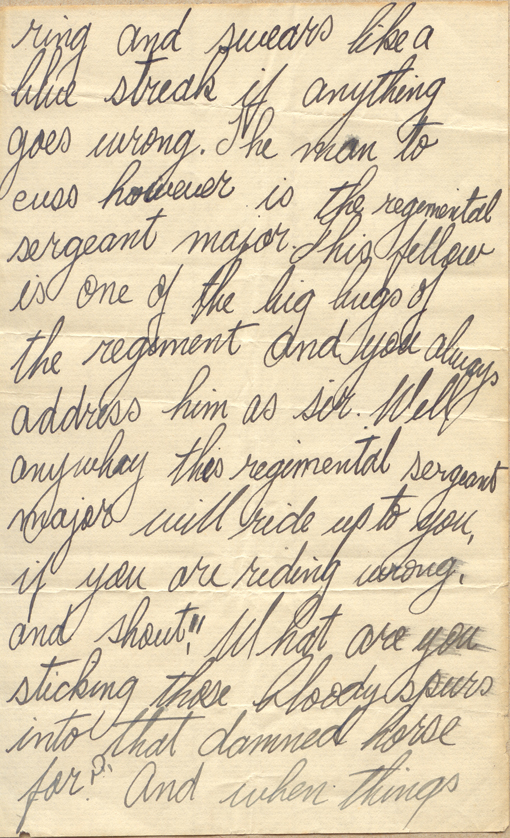 ring and swears like a
blue streak if anything
goes wrong. The man to
cuss however is the regimental
sergeant major. This fellow
is one of the big bugs of
the regiment and you always
address him as sir. Well
anywhay this regimental sergeant
major will ride up to you,
if you are riding wrong,
and shout, "What are you
sticking those bloody spurs
into that damned horse
for?" And when things